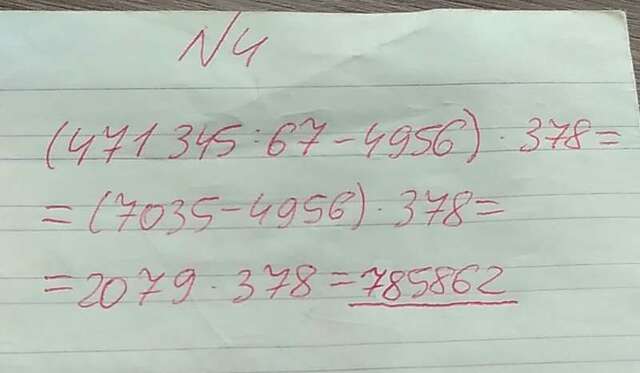 N4
(471 345 : 67 - 4956) · 378 =
= (7035 - 4956) · 378 =
= 2079 · 378 = 785862